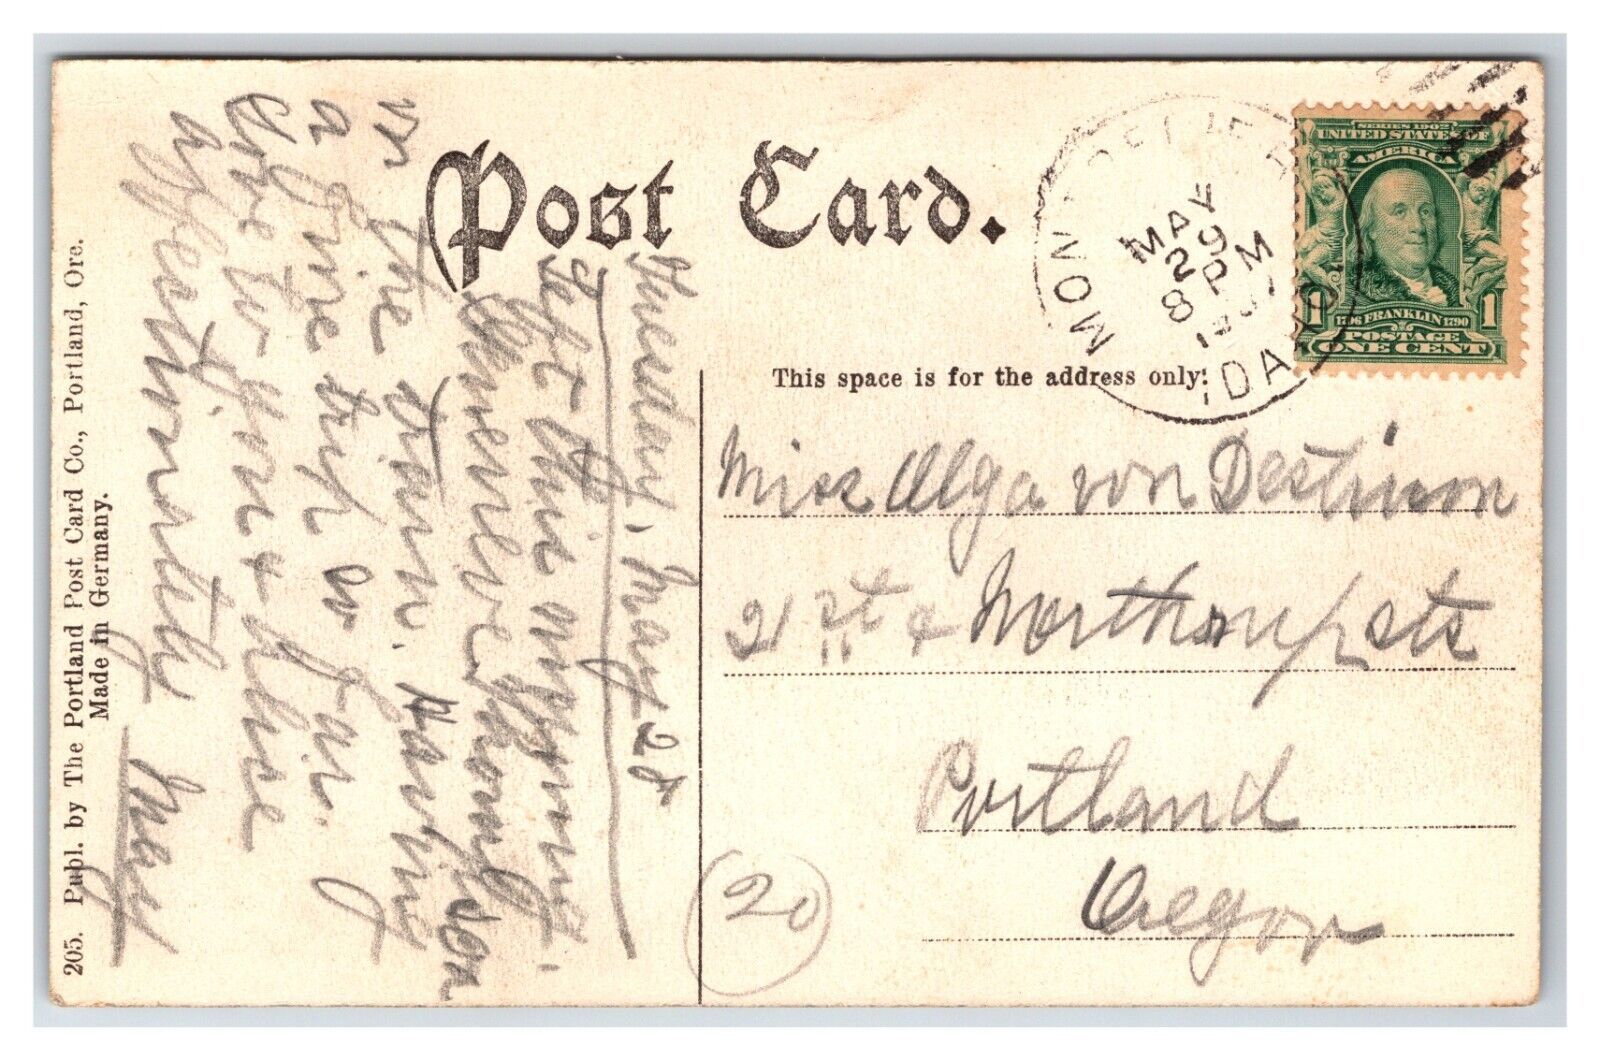 Post Card.
MONTPELIER
MAY
29
8 PM
IDAHO
SERIES 1902
UNITED STATES OF
AMERICA
1 1
1706 FRANKLIN 1790
POSTAGE
ONE CENT
This space is for the address only.
Miss Olga von Destinon
21st & Northrup sts
Portland
Oregon
20
Tuesday, May 28
Left this morning.
Genevieve Thompson
on the train. Having
a fine trip so far.
Love to you & Elise
affectionately
May
205. Publ. by The Portland Post Card Co., Portland, Ore.
Made in Germany.